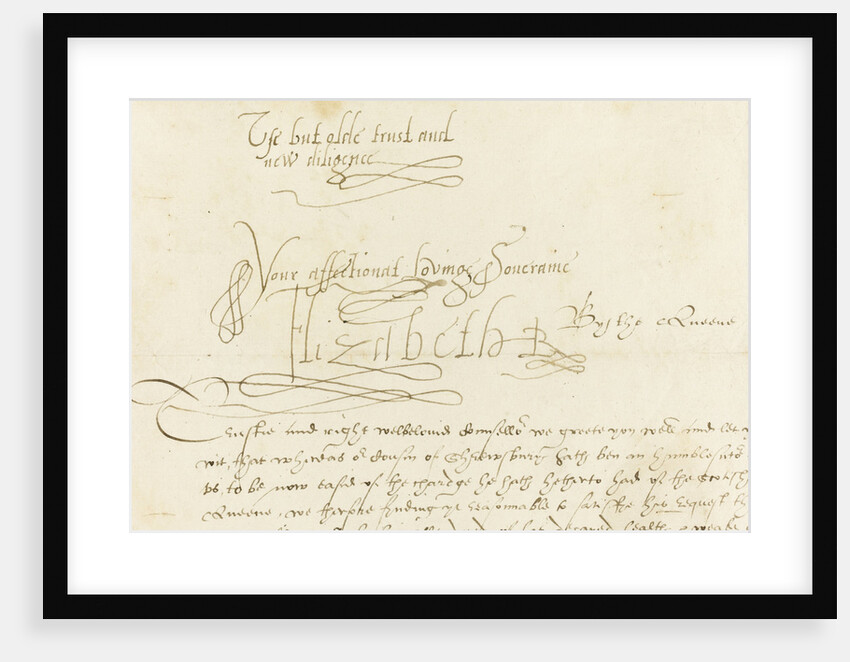 Use but olde trust and
new diligence
Your affectionat lovinge Soveraine
Elizabeth R
By the Queene
Trustie and right welbelovid Counsellor we greete you well and let
wit, that whereas or Cousin of Shrewsbury hath ben an humble sutor
us, to be now eased of the chardge he hath hetherto had of the Scotish
Queene, we therfore finding yt reasonnable to satisfie his request